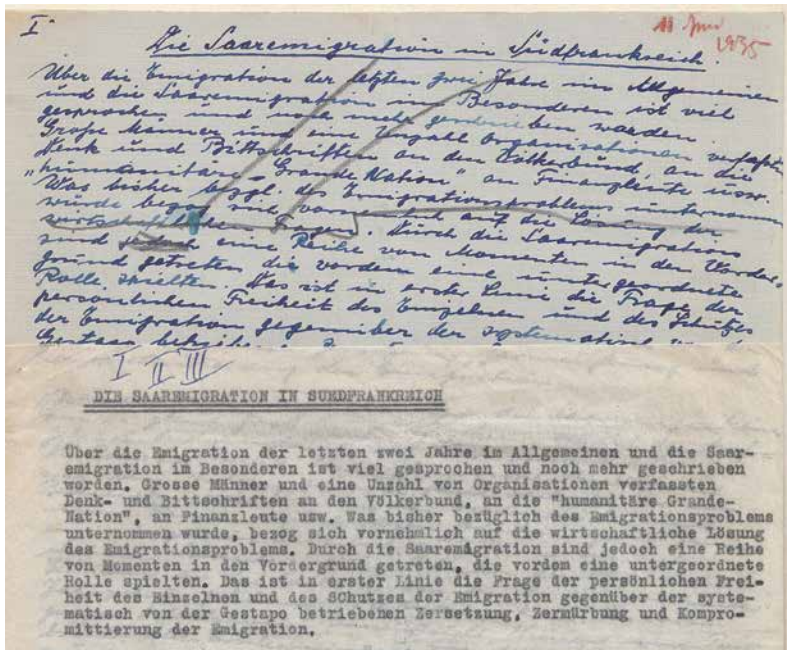 I
11 Juni 1935
Die Saaremigration in Südfrankreich.
Über die Emigration der letzten zwei Jahre im Allgemeinen
und die Saaremigration im Besonderen ist viel
gesprochen und noch mehr geschrieben worden.
Große Männer und eine Unzahl Organisationen verfaßten
Denk und Bittschriften an den Völkerbund, an die
„humanitäre - Grande Nation" an Finanzleute usw.
Was bisher bezgl. des Emigrationsproblems unternommen
wurde bezog sich vornehmlich auf die Lösung der
wirtschaftlichen Fragen. Durch die Saaremigration
sind jedoch eine Reihe von Momenten in den Vorder-
grund getreten die vordem eine untergeordnete
Rolle spielten. Das ist in erster Linie die Frage der
persönlichen Freiheit des Einzelnen und des Schutzes
der Emigration gegenüber der systematisch
I II III
DIE SAAREMIGRATION IN SUEDFRANKREICH
Über die Emigration der letzten zwei Jahre im Allgemeinen und die Saar-
emigration im Besonderen ist viel gesprochen und noch mehr geschrieben
worden. Grosse Männer und eine Unzahl von Organisationen verfassten
Denk- und Bittschriften an den Völkerbund, an die "humanitäre Grande-
Nation", an Finanzleute usw. Was bisher bezüglich des Emigrationsproblems
unternommen wurde, bezog sich vornehmlich auf die wirtschaftliche Lösung
des Emigrationsproblems. Durch die Saaremigration sind jedoch eine Reihe
von Momenten in den Vordergrund getreten, die vordem eine untergeordnete
Rolle spielten. Das ist in erster Linie die Frage der persönlichen Frei-
heit des Einzelnen und des SChutzes der Emigration gegenüber der syste-
matisch von der Gestapo betriebenen Zersetzung, Zermürbung und Kompro-
mittierung der Emigration.